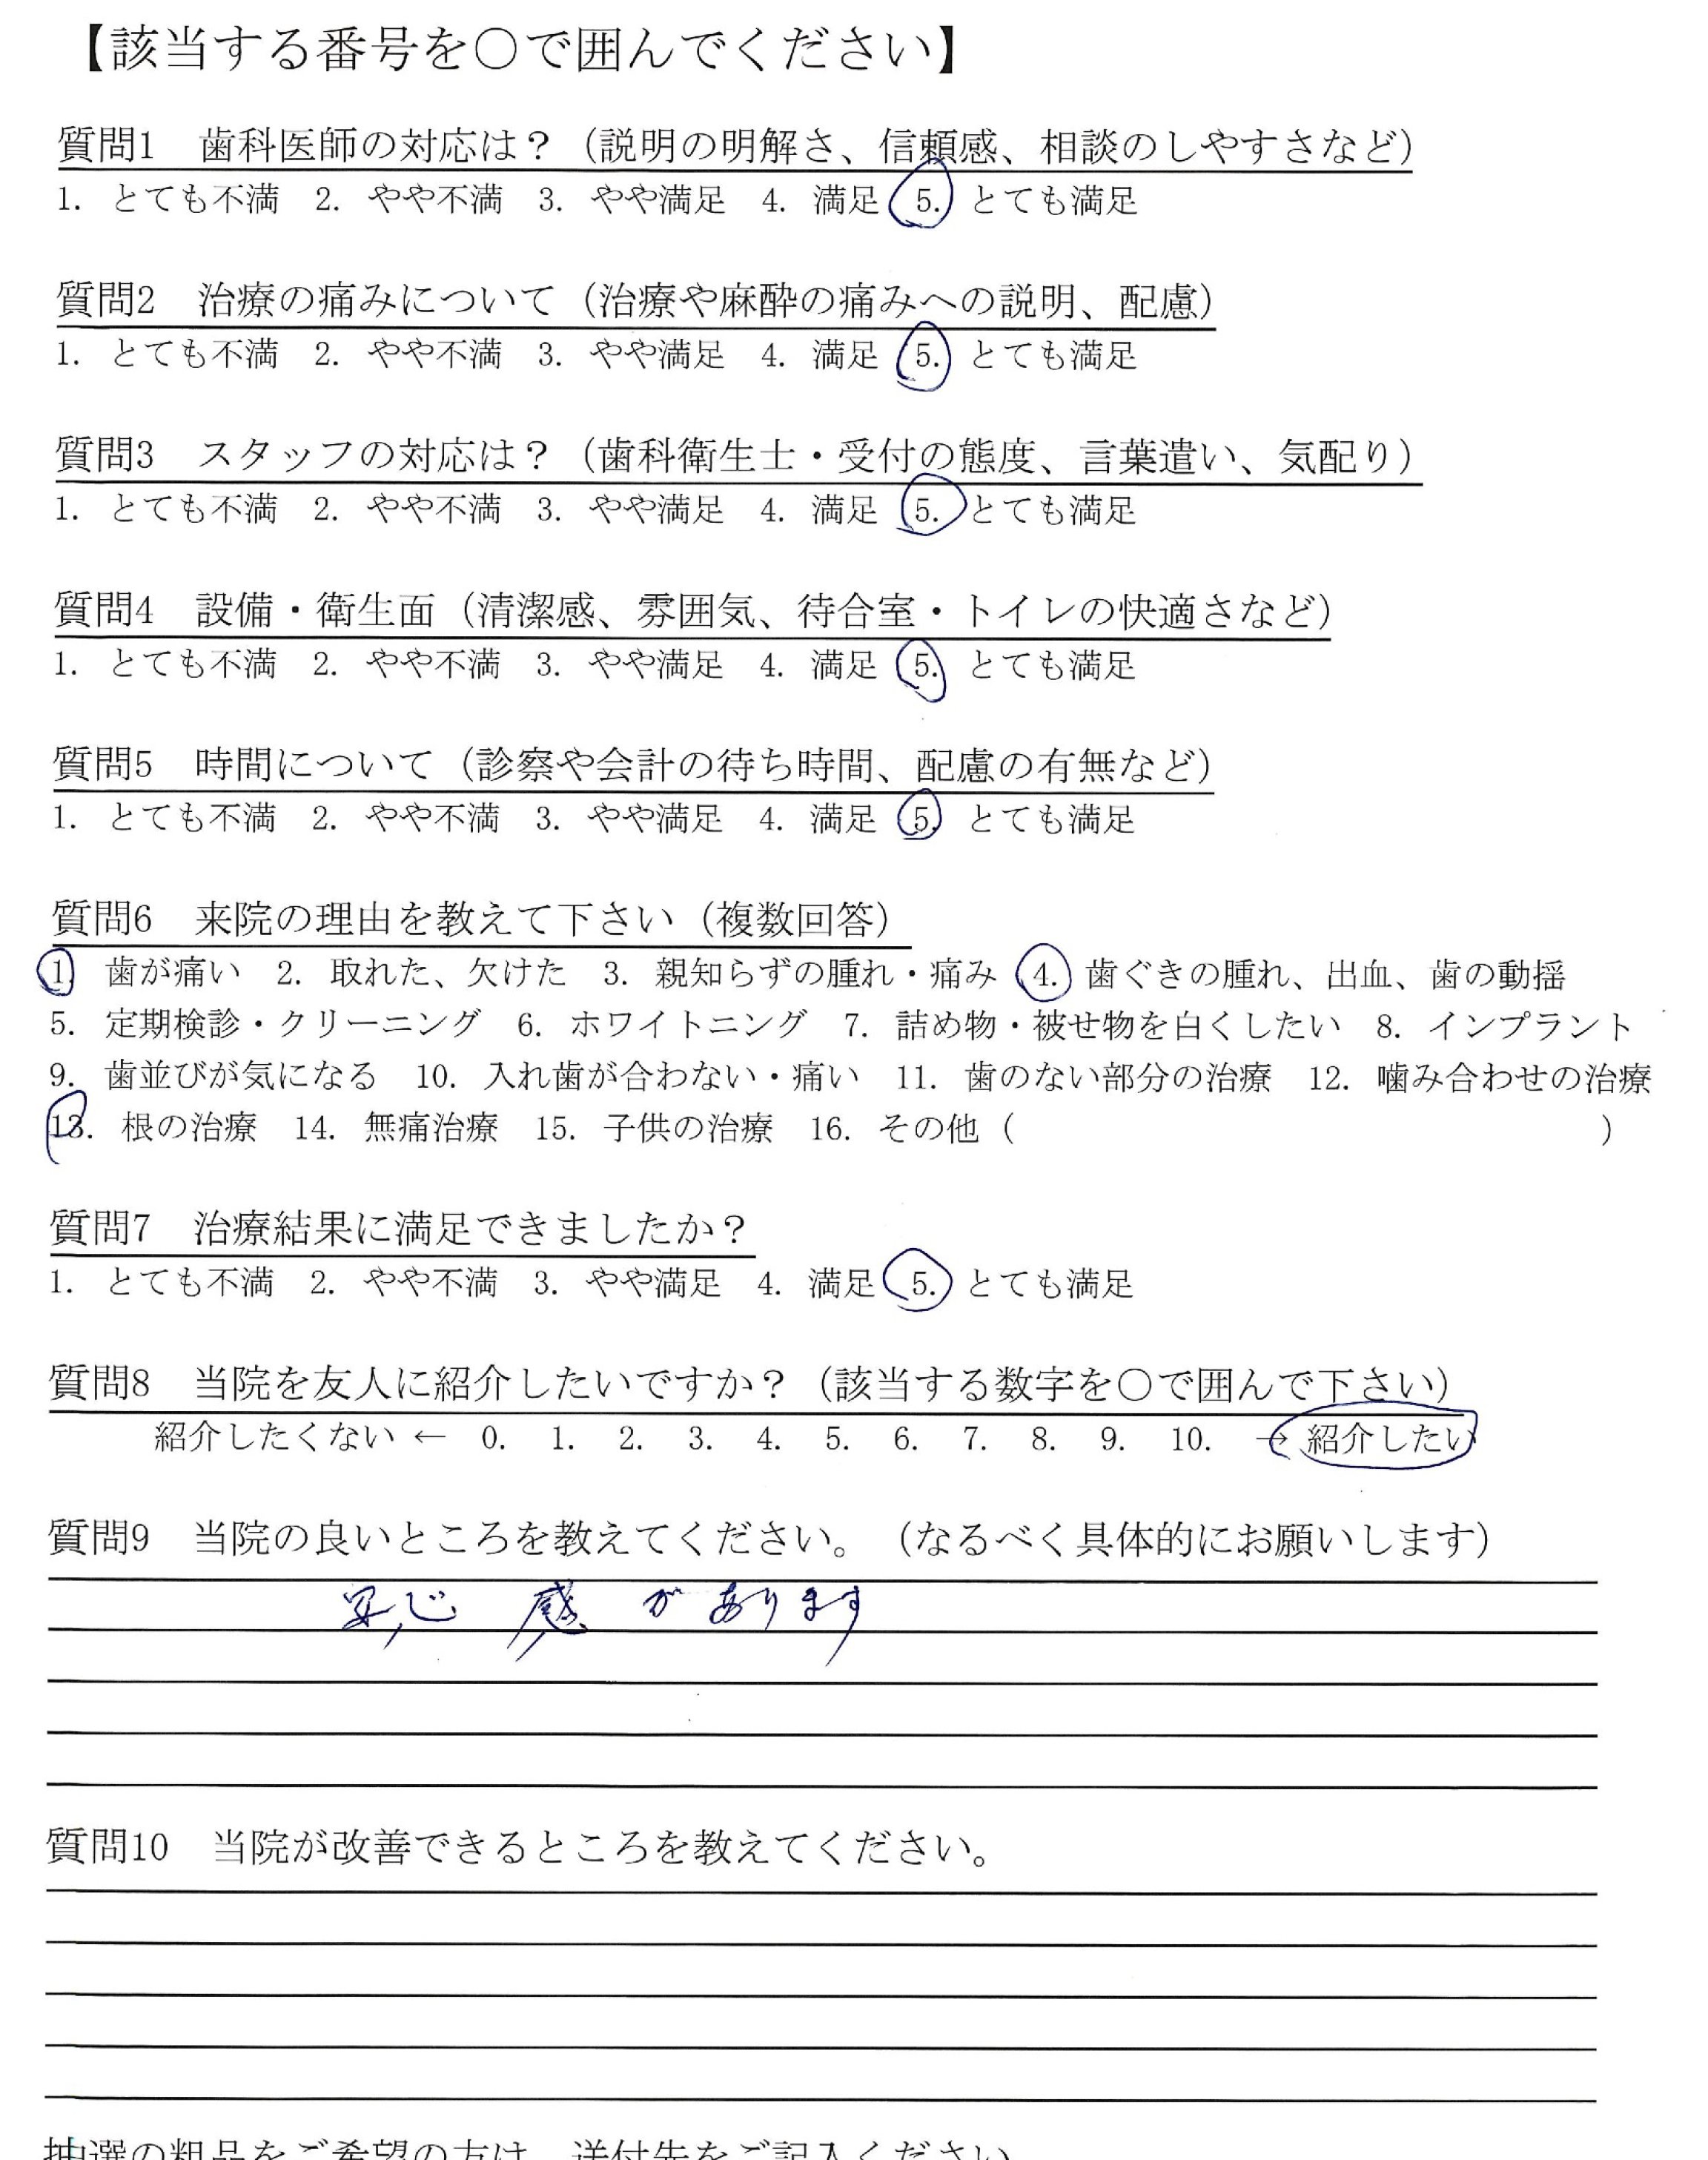 【該当する番号を〇で囲んでください】
質問1　歯科医師の対応は？（説明の明解さ、信頼感、相談のしやすさなど）
1. とても不満　2. やや不満　3. やや満足　4. 満足　5. とても満足
質問2　治療の痛みについて（治療や麻酔の痛みへの説明、配慮）
1. とても不満　2. やや不満　3. やや満足　4. 満足　5. とても満足
質問3　スタッフの対応は？（歯科衛生士・受付の態度、言葉遣い、気配り）
1. とても不満　2. やや不満　3. やや満足　4. 満足　5. とても満足
質問4　設備・衛生面（清潔感、雰囲気、待合室・トイレの快適さなど）
1. とても不満　2. やや不満　3. やや満足　4. 満足　5. とても満足
質問5　時間について（診察や会計の待ち時間、配慮の有無など）
1. とても不満　2. やや不満　3. やや満足　4. 満足　5. とても満足
質問6　来院の理由を教えて下さい（複数回答）
1. 歯が痛い　2. 取れた、欠けた　3. 親知らずの腫れ・痛み　4. 歯ぐきの腫れ、出血、歯の動揺
5. 定期検診・クリーニング　6. ホワイトニング　7. 詰め物・被せ物を白くしたい　8. インプラント
9. 歯並びが気になる　10. 入れ歯が合わない・痛い　11. 歯のない部分の治療　12. 噛み合わせの治療
13. 根の治療　14. 無痛治療　15. 子供の治療　16. その他（　　　　　　　　　）
質問7　治療結果に満足できましたか？
1. とても不満　2. やや不満　3. やや満足　4. 満足　5. とても満足
質問8　当院を友人に紹介したいですか？（該当する数字を〇で囲んで下さい）
紹介したくない ← 0. 1. 2. 3. 4. 5. 6. 7. 8. 9. 10. → 紹介したい
質問9　当院の良いところを教えてください。（なるべく具体的にお願いします）
安心感があります
質問10　当院が改善できるところを教えてください。
抽選の粗品をご希望の方は、送付先をご記入ください